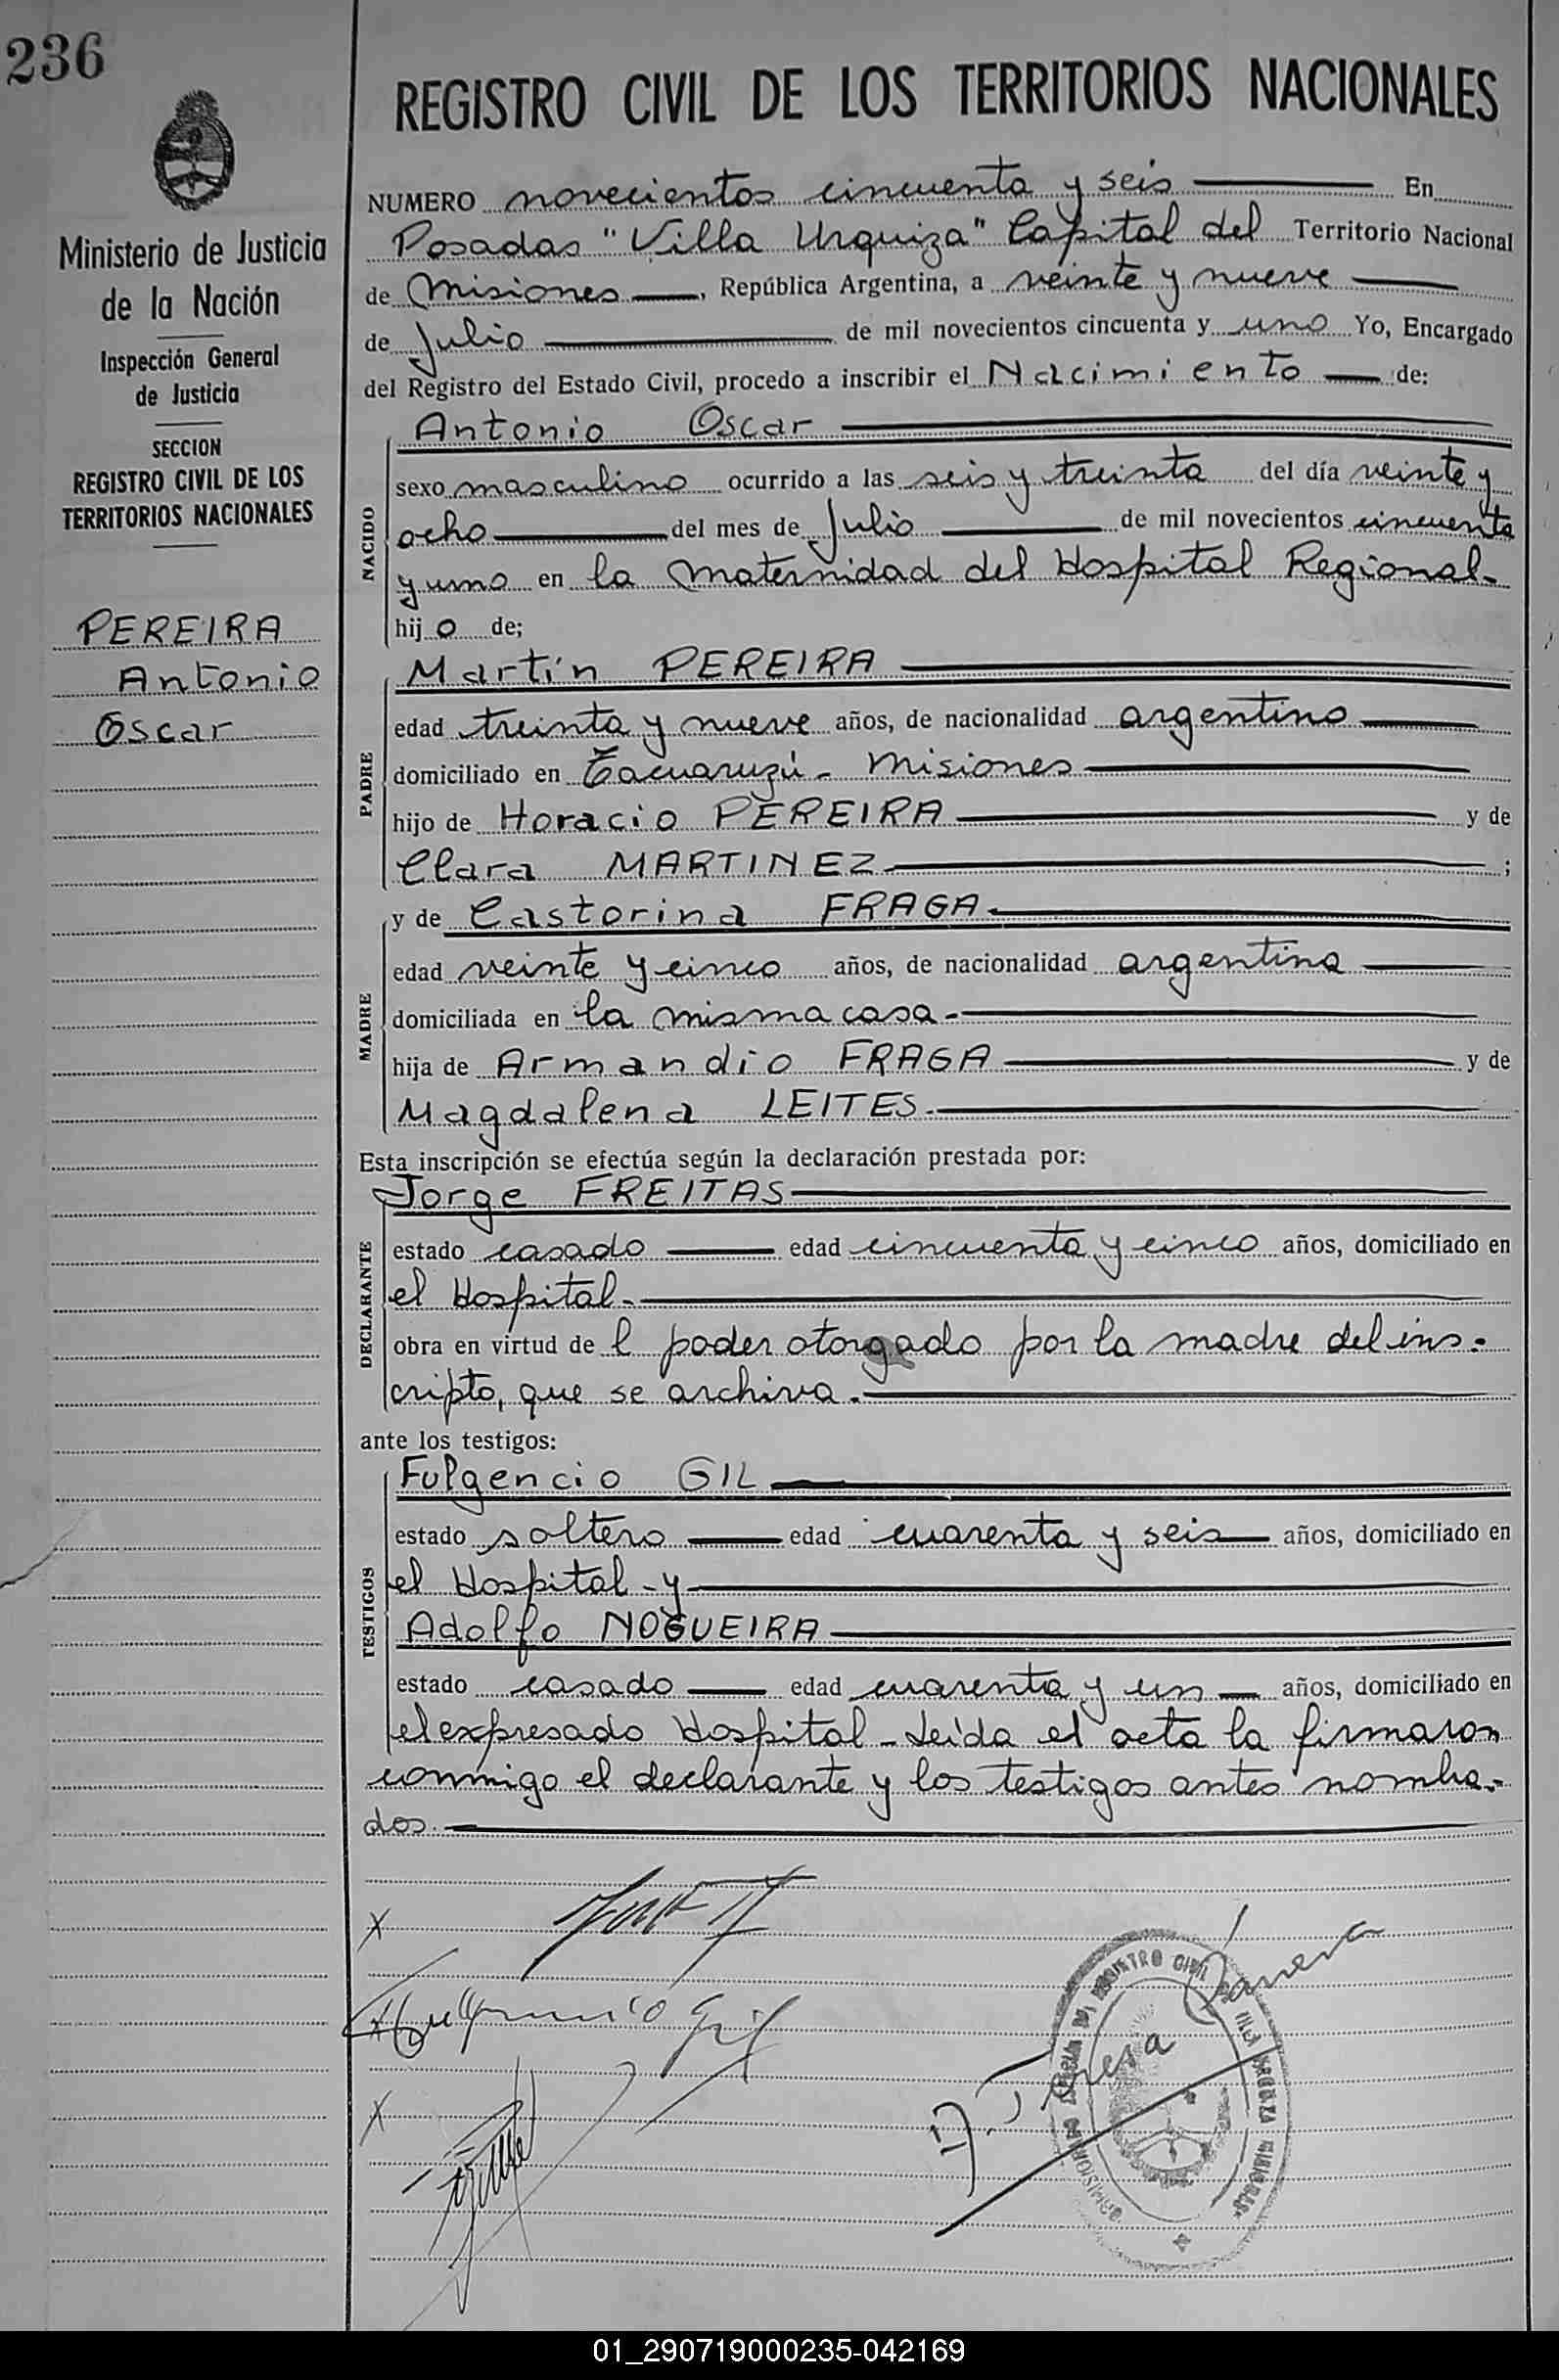 236
Ministerio de Justicia
de la Nación
Inspección General
de Justicia
SECCION
REGISTRO CIVIL DE LOS
TERRITORIOS NACIONALES
PEREIRA
Antonio
Oscar
REGISTRO CIVIL DE LOS TERRITORIOS NACIONALES
NUMERO novecientos cincuenta y seis En
Posadas "Villa Urquiza" Capital del Territorio Nacional
de Misiones, República Argentina, a veinte y nueve
de Julio de mil novecientos cincuenta y uno Yo, Encargado
del Registro del Estado Civil, procedo a inscribir el Nacimiento de:
NACIDO
Antonio Oscar
sexo masculino ocurrido a las seis y treinta del día veinte y
ocho del mes de Julio de mil novecientos cincuenta
y uno en la Maternidad del Hospital Regional-
hijo de;
PADRE
Martín PEREIRA
edad treinta y nueve años, de nacionalidad argentino
domiciliado en Tacuaruzú - Misiones
hijo de Horacio PEREIRA y de
Clara MARTINEZ ;
MADRE
y de Castorina FRAGA
edad veinte y cinco años, de nacionalidad argentina
domiciliada en la misma casa-
hija de Armandio FRAGA y de
Magdalena LEITES-
Esta inscripción se efectúa según la declaración prestada por:
DECLARANTE
Jorge FREITAS
estado casado edad cincuenta y cinco años, domiciliado en
el Hospital-
obra en virtud de l poder otorgado por la madre del ins-
cripto, que se archiva.
ante los testigos:
TESTIGOS
Fulgencio GIL
estado soltero edad cuarenta y seis años, domiciliado en
el Hospital - y
Adolfo NOGUEIRA
estado casado edad cuarenta y un años, domiciliado en
el expresado Hospital - Leída el acta la firmaron
conmigo el declarante y los testigos antes nombra-
dos.
X
X Fulgencio Gil
X
REGISTRO CIVIL
01_290719000235-042169